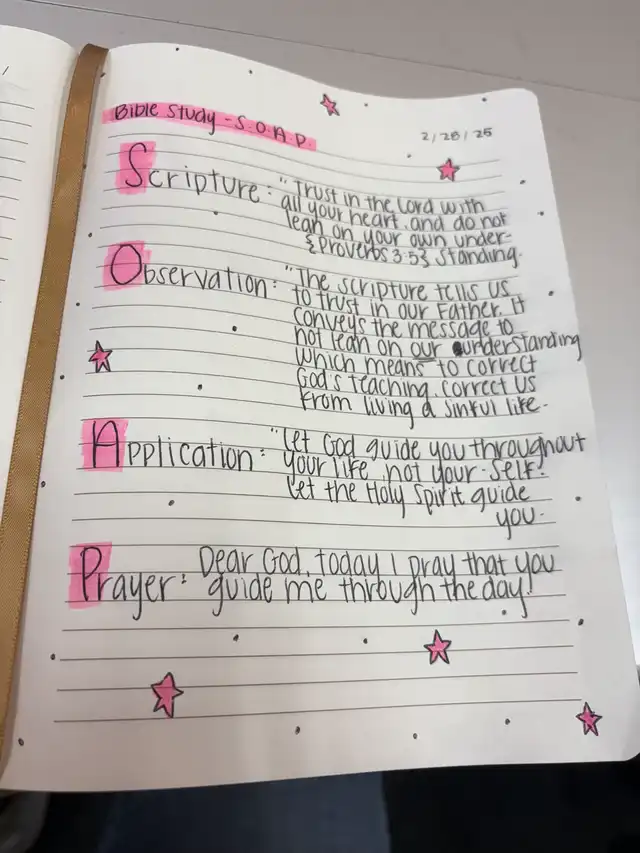 Bible Study - S.O.A.P.
2/28/25
Scripture: "Trust in the Lord with
all your heart and do not
lean on your own under-
{Proverbs 3:5} standing.
Observation: "The scripture tells us
to trust in our Father. It
conveys the message to
not lean on our understanding
which means to correct
God's teaching, correct us
from living a sinful life.
Application: "Let God guide you throughout
your life, not your-self.
Let the Holy Spirit guide
you.
Prayer: Dear God, today I pray that you
guide me through the day!